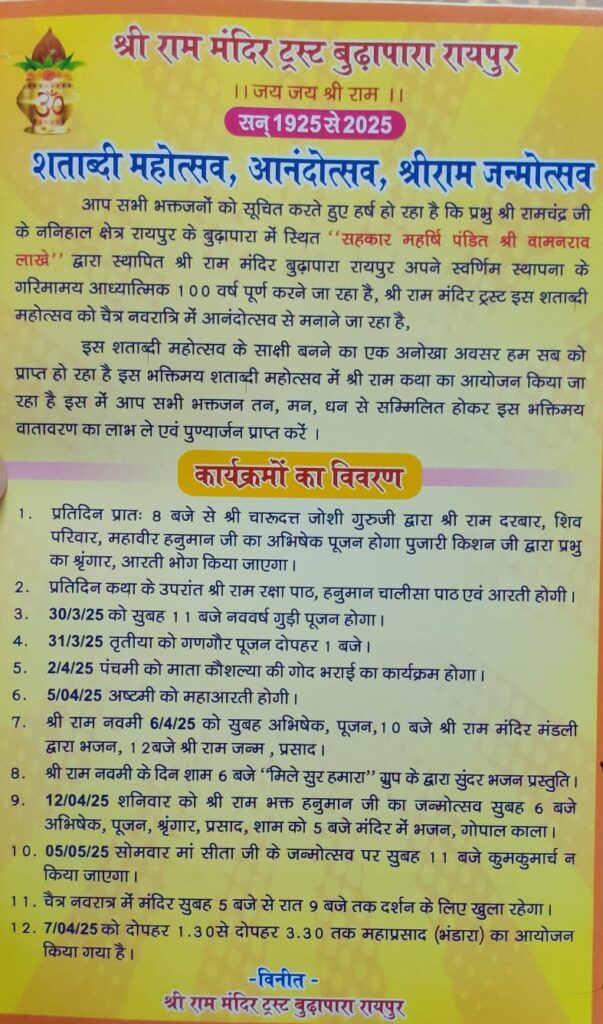 श्री राम मंदिर ट्रस्ट बुढ़ापारा रायपुर
।। जय जय श्री राम ।।
सन् 1925 से 2025
शताब्दी महोत्सव, आनंदोत्सव, श्रीराम जन्मोत्सव
आप सभी भक्तजनों को सूचित करते हुए हर्ष हो रहा है कि प्रभु श्री रामचंद्र जी
के ननिहाल क्षेत्र रायपुर के बुढ़ापारा में स्थित ‘‘सहकार महर्षि पंडित श्री वामनराव
लाखे’’ द्वारा स्थापित श्री राम मंदिर बुढ़ापारा रायपुर अपने स्वर्णिम स्थापना के
गरिमामय आध्यात्मिक 100 वर्ष पूर्ण करने जा रहा है, श्री राम मंदिर ट्रस्ट इस शताब्दी
महोत्सव को चैत्र नवरात्रि में आनंदोत्सव से मनाने जा रहा है,
इस शताब्दी महोत्सव के साक्षी बनने का एक अनोखा अवसर हम सब को
प्राप्त हो रहा है इस भक्तिमय शताब्दी महोत्सव में श्री राम कथा का आयोजन किया जा
रहा है इस में आप सभी भक्तजन तन, मन, धन से सम्मिलित होकर इस भक्तिमय
वातावरण का लाभ ले एवं पुण्यार्जन प्राप्त करें ।
कार्यक्रमों का विवरण
1. प्रतिदिन प्रातः 8 बजे से श्री चारूदत्त जोशी गुरुजी द्वारा श्री राम दरबार, शिव
परिवार, महावीर हनुमान जी का अभिषेक पूजन होगा पुजारी किशन जी द्वारा प्रभु
का श्रृंगार, आरती भोग किया जाएगा ।
2. प्रतिदिन कथा के उपरांत श्री राम रक्षा पाठ, हनुमान चालीसा पाठ एवं आरती होगी ।
3. 30/3/25 को सुबह 11 बजे नववर्ष गुड़ी पूजन होगा ।
4. 31/3/25 तृतीया को गणगौर पूजन दोपहर 1 बजे ।
5. 2/4/25 पंचमी को माता कौशल्या की गोद भराई का कार्यक्रम होगा ।
6. 5/04/25 अष्टमी को महाआरती होगी ।
7. श्री राम नवमी 6/4/25 को सुबह अभिषेक, पूजन,10 बजे श्री राम मंदिर मंडली
द्वारा भजन, 12बजे श्री राम जन्म , प्रसाद ।
8. श्री राम नवमी के दिन शाम 6 बजे ‘‘मिले सुर हमारा’’ ग्रुप के द्वारा सुंदर भजन प्रस्तुति ।
9. 12/04/25 शनिवार को श्री राम भक्त हनुमान जी का जन्मोत्सव सुबह 6 बजे
अभिषेक, पूजन, श्रृंगार, प्रसाद, शाम को 5 बजे मंदिर में भजन, गोपाल काला ।
10. 05/05/25 सोमवार मां सीता जी के जन्मोत्सव पर सुबह 11 बजे कुमकुमार्च न
किया जाएगा ।
11. चैत्र नवरात्र में मंदिर सुबह 5 बजे से रात 9 बजे तक दर्शन के लिए खुला रहेगा ।
12. 7/04/25 को दोपहर 1.30से दोपहर 3.30 तक महाप्रसाद (भंडारा) का आयोजन
किया गया है ।
-विनीत -
श्री राम मंदिर ट्रस्ट बुढ़ापारा रायपुर